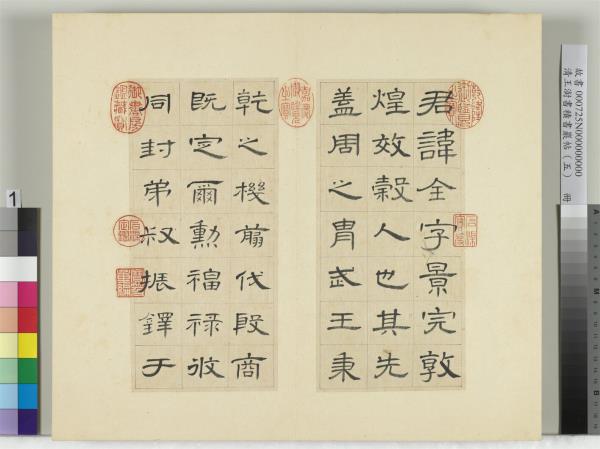 君諱全字景完敦
煌效穀人也其先
蓋周之胄武王秉
乾之機翦伐殷商
既定爾勳福祿攸
同封弟叔振鐸于
故書 000725N00000000
清王澍書積書巖帖（五） 冊
1